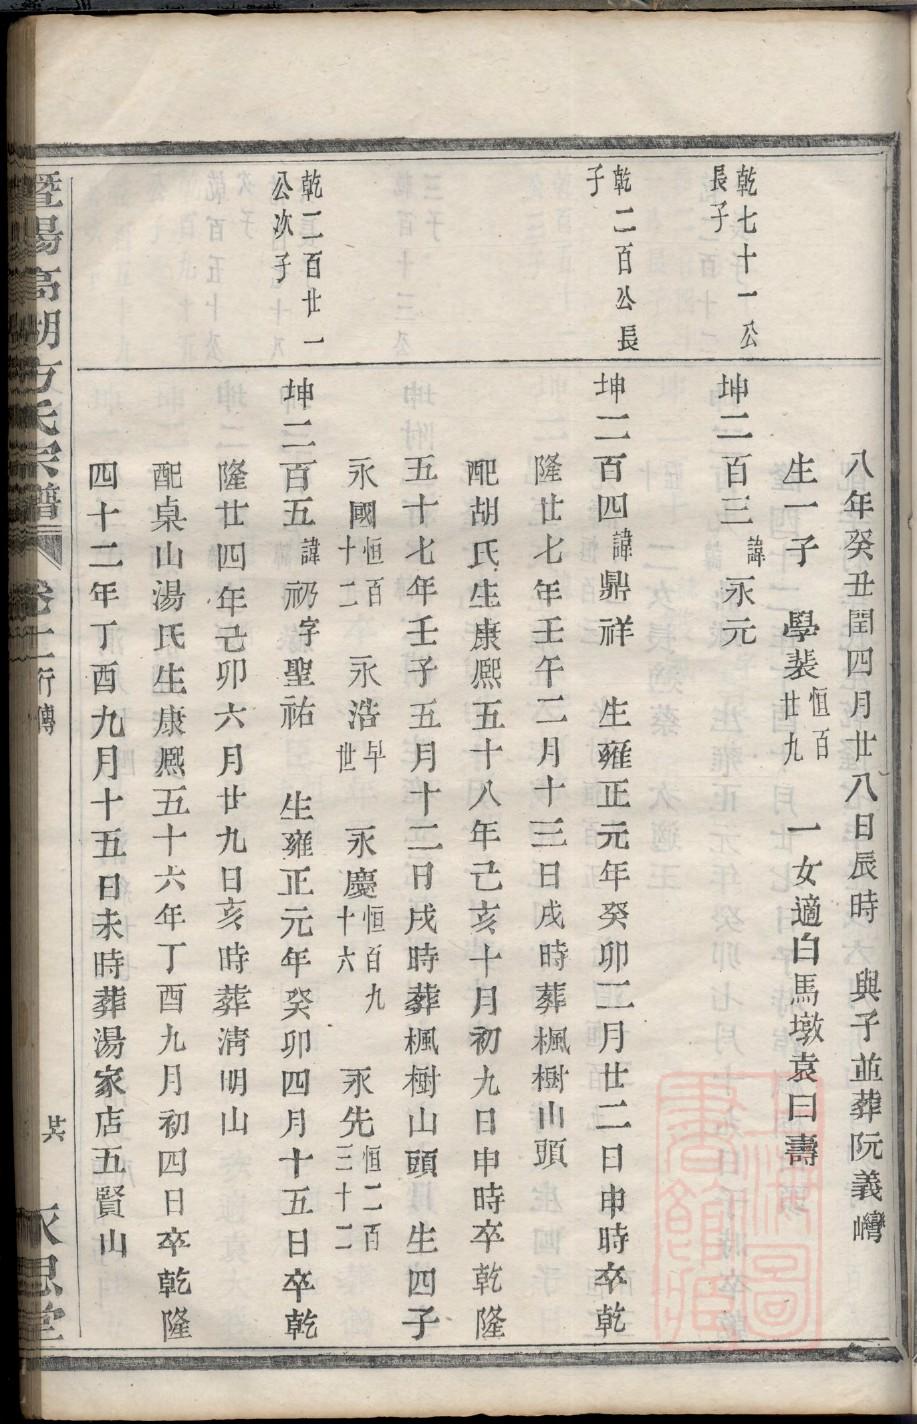 八年癸丑閏四月廿八日辰時　與子並葬阮義巒
生一子　學裴恒百廿九　一女適白馬墩袁曰壽
乾七十一公長子
坤二百三諱永元
乾二百公長子
坤二百四諱鼎祥　生雍正元年癸卯二月廿二日申時卒乾
隆廿七年壬午二月十三日戌時葬楓樹山頭
配胡氏生康熙五十八年己亥十月初九日申時卒乾隆
五十七年壬子五月十二日戌時葬楓樹山頭　生四子
永國恒百十二　永浩早世　永慶恒百九十六　永先恒二百三十二
乾二百廿一公次子
坤二百五諱礽字聖祐　生雍正元年癸卯四月十五日卒乾
隆廿四年己卯六月廿九日亥時葬淸明山
配桌山湯氏生康熙五十六年丁酉九月初四日卒乾隆
四十二年丁酉九月十五日未時葬湯家店五賢山
暨陽高湖方氏宗譜　卷二　行傳　　永思堂